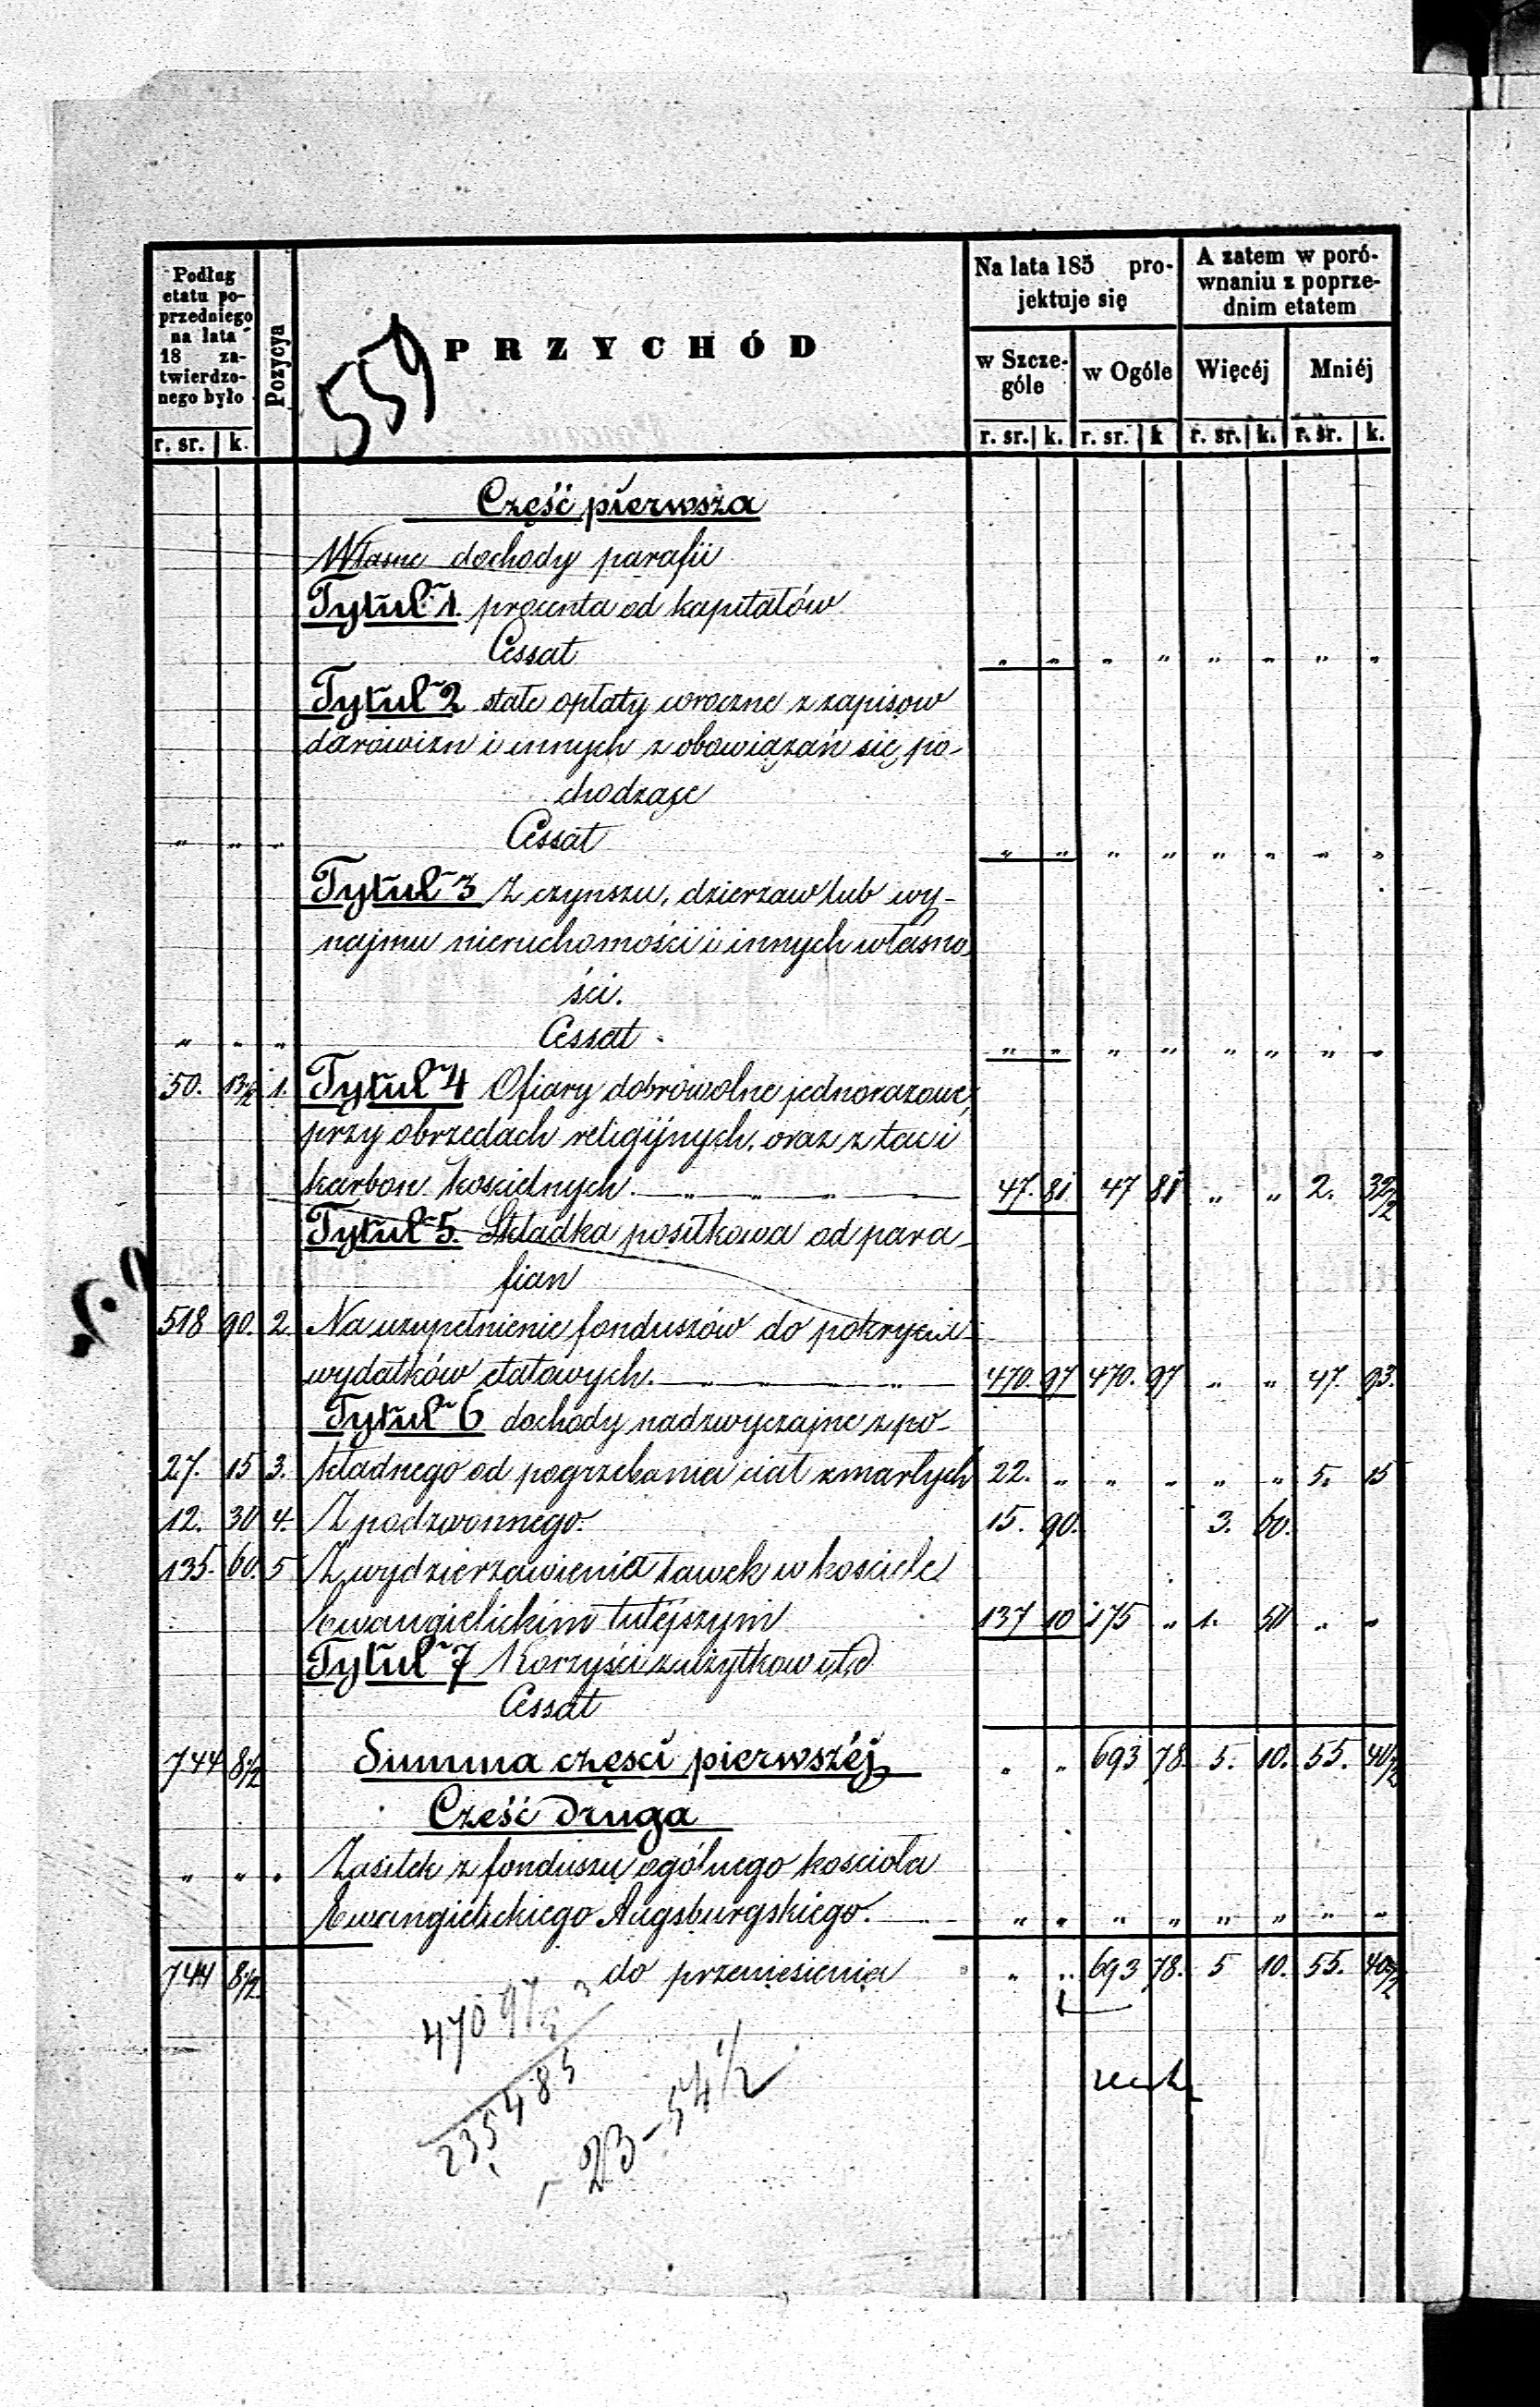 Podług etatu poprzedniego na lata 18 zatwierdzonego było
Pozycya
PRZYCHÓD
559
Na lata 185 projektuje się
A zatem w porównaniu z poprzednim etatem
w Szczególe
w Ogóle
Więcéj
Mniéj
r. sr. k. r. sr. k. r. sr. k r. sr. k. r. sr. k.
Część pierwsza
Własne dochody parafii
Tytuł 1. procenta od kapitałów
Cessat „ „ „ „ „ „ „ „
Tytuł 2 stałe opłaty wroczne z zapisow
darowizn i innych z obowiązań się po-
chodzące
„ „ „ Cessat „ „ „ „ „ „ „ „
Tytuł 3 Z czynszu, dzierzaw lub wy-
najmu nieruchomości i innych własno
ści.
„ „ „ Cessat „ „ „ „ „ „ „ „
50. 13½ 1. Tytuł 4 Ofiary dobrowolne jednorazowe,
przy obrzedach religijnych, oraz z tac i
karbon koscielnych. „ „ „ 47. 81 47 81 „ „ 2. 32½
Tytuł 5. Składka posiłkowa od para-
fian
518 90. 2 Na uzupełnienie funduszów do pokrycia
wydatków etatowych. „ „ „ „ 470. 97 470. 97 „ „ 47. 93.
Tytuł 6 dochody nadzwyczajne z po-
27. 15 3. kładnego od pogrzebania ciał zmarłych 22. „ „ „ „ „ 5. 15
12. 30 4. Z podzwonnego. 15. 90. 3. 60.
135. 60. 5 Z wydzierzawienia ławek w kosciele
Ewangielickim tutéjszym 137 10 175 „ 1. 50 „ „
Tytuł 7 Korzyści z użytkow i t. d
Cessat
744 8½ Summa częsci pierwszéj „ „ 693 78. 5. 10. 55. 40½
Cześć druga
„ „ „ Zasiłek z funduszu ogólnego koscioła
Ewangielickiego Augsburgskiego. „ „ „ „ „ „ „ „
744 8½ do przeniesienia „ „ 693 78. 5 10. 55. 40½
470 97
235 48 5
23-54½